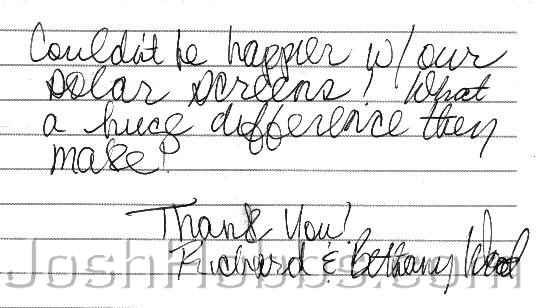 Couldn't be happier w/ our
solar screens! What
a huge difference they
make!
Thank You!
Richard & Bethany Wood
JoshHobbs.com